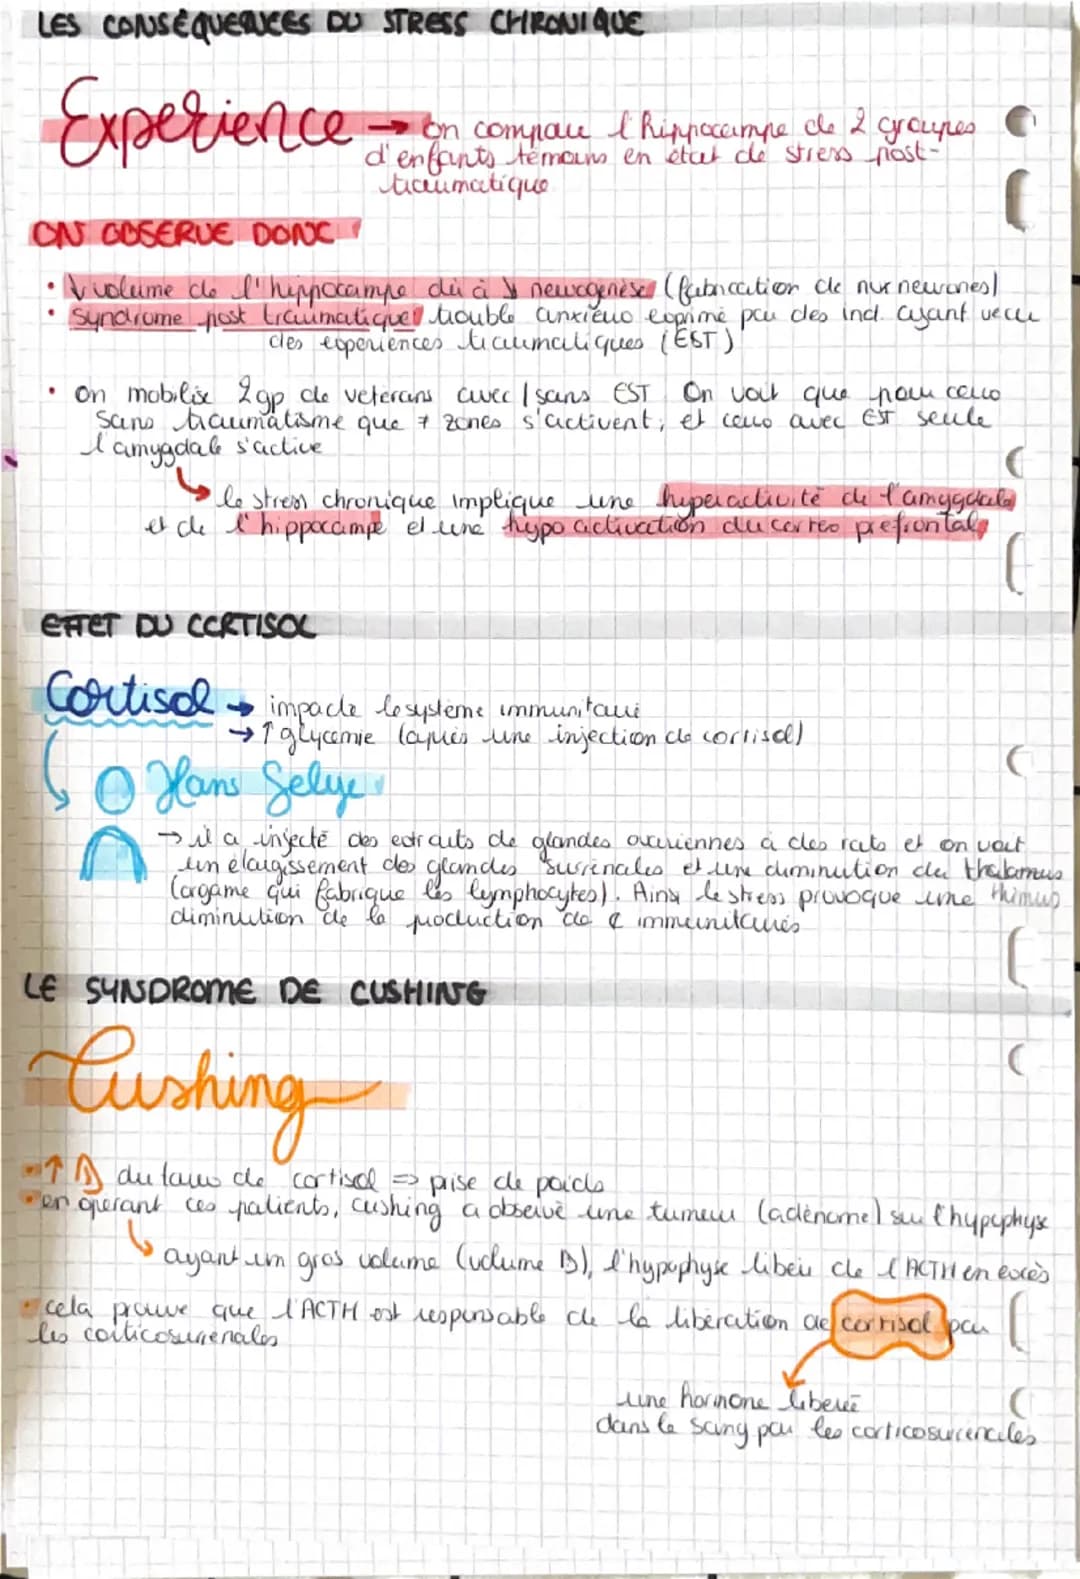 LES CONSÉQUENCES DU STRESS CHRONIQUE
Experience → on compare l'hippocampe de 2 groupes
d'enfants témoins en état de stress post-
traumatique
ON OBSERVE DONC
• ↓ volume de l'hippocampe dû à ↓ neurogenèse (fabrication de nvx neurones)
• Syndrome post traumatique trouble anxieux exprimé par des ind. ayant vécu
des expériences traumatiques (EST)
• On mobilise 2gp de vétérans avec / sans EST On voit que pour ceux
sans traumatisme que ≠ zones s'activent, et ceux avec EST seule
l'amygdale s'active
↳ le stress chronique implique une hyperactivité de l'amygdale
et de l'hippocampe et une hypo activation du cortex préfrontal
EFFET DU CORTISOL
Cortisol → impacte le système immunitaire
→ ↑ glycemie (après une injection de cortisol)
↳ Hans Selye
→ il a injecté des extraits de glandes ovariennes à des rats et on voit
un élargissement des glandes surrénales et une diminution du thalamus
(orgame qui fabrique les lymphocytes). Ainsi le stress provoque une thimus
diminution de la production de ¢ immunitaires
LE SYNDROME DE CUSHING
Cushing
• ↑ du taux de cortisol => prise de poids
• en opérant ces patients, cushing a observé une tumeur (adénome) sur l'hypophyse
↳ ayant un gros volume (volume ↑), l'hypophyse libère de l'ACTH en excès
• cela prouve que l'ACTH est responsable de la libération de cortisol par
les corticosurrénales
une hormone liberée
dans le sang par les corticosurrénales